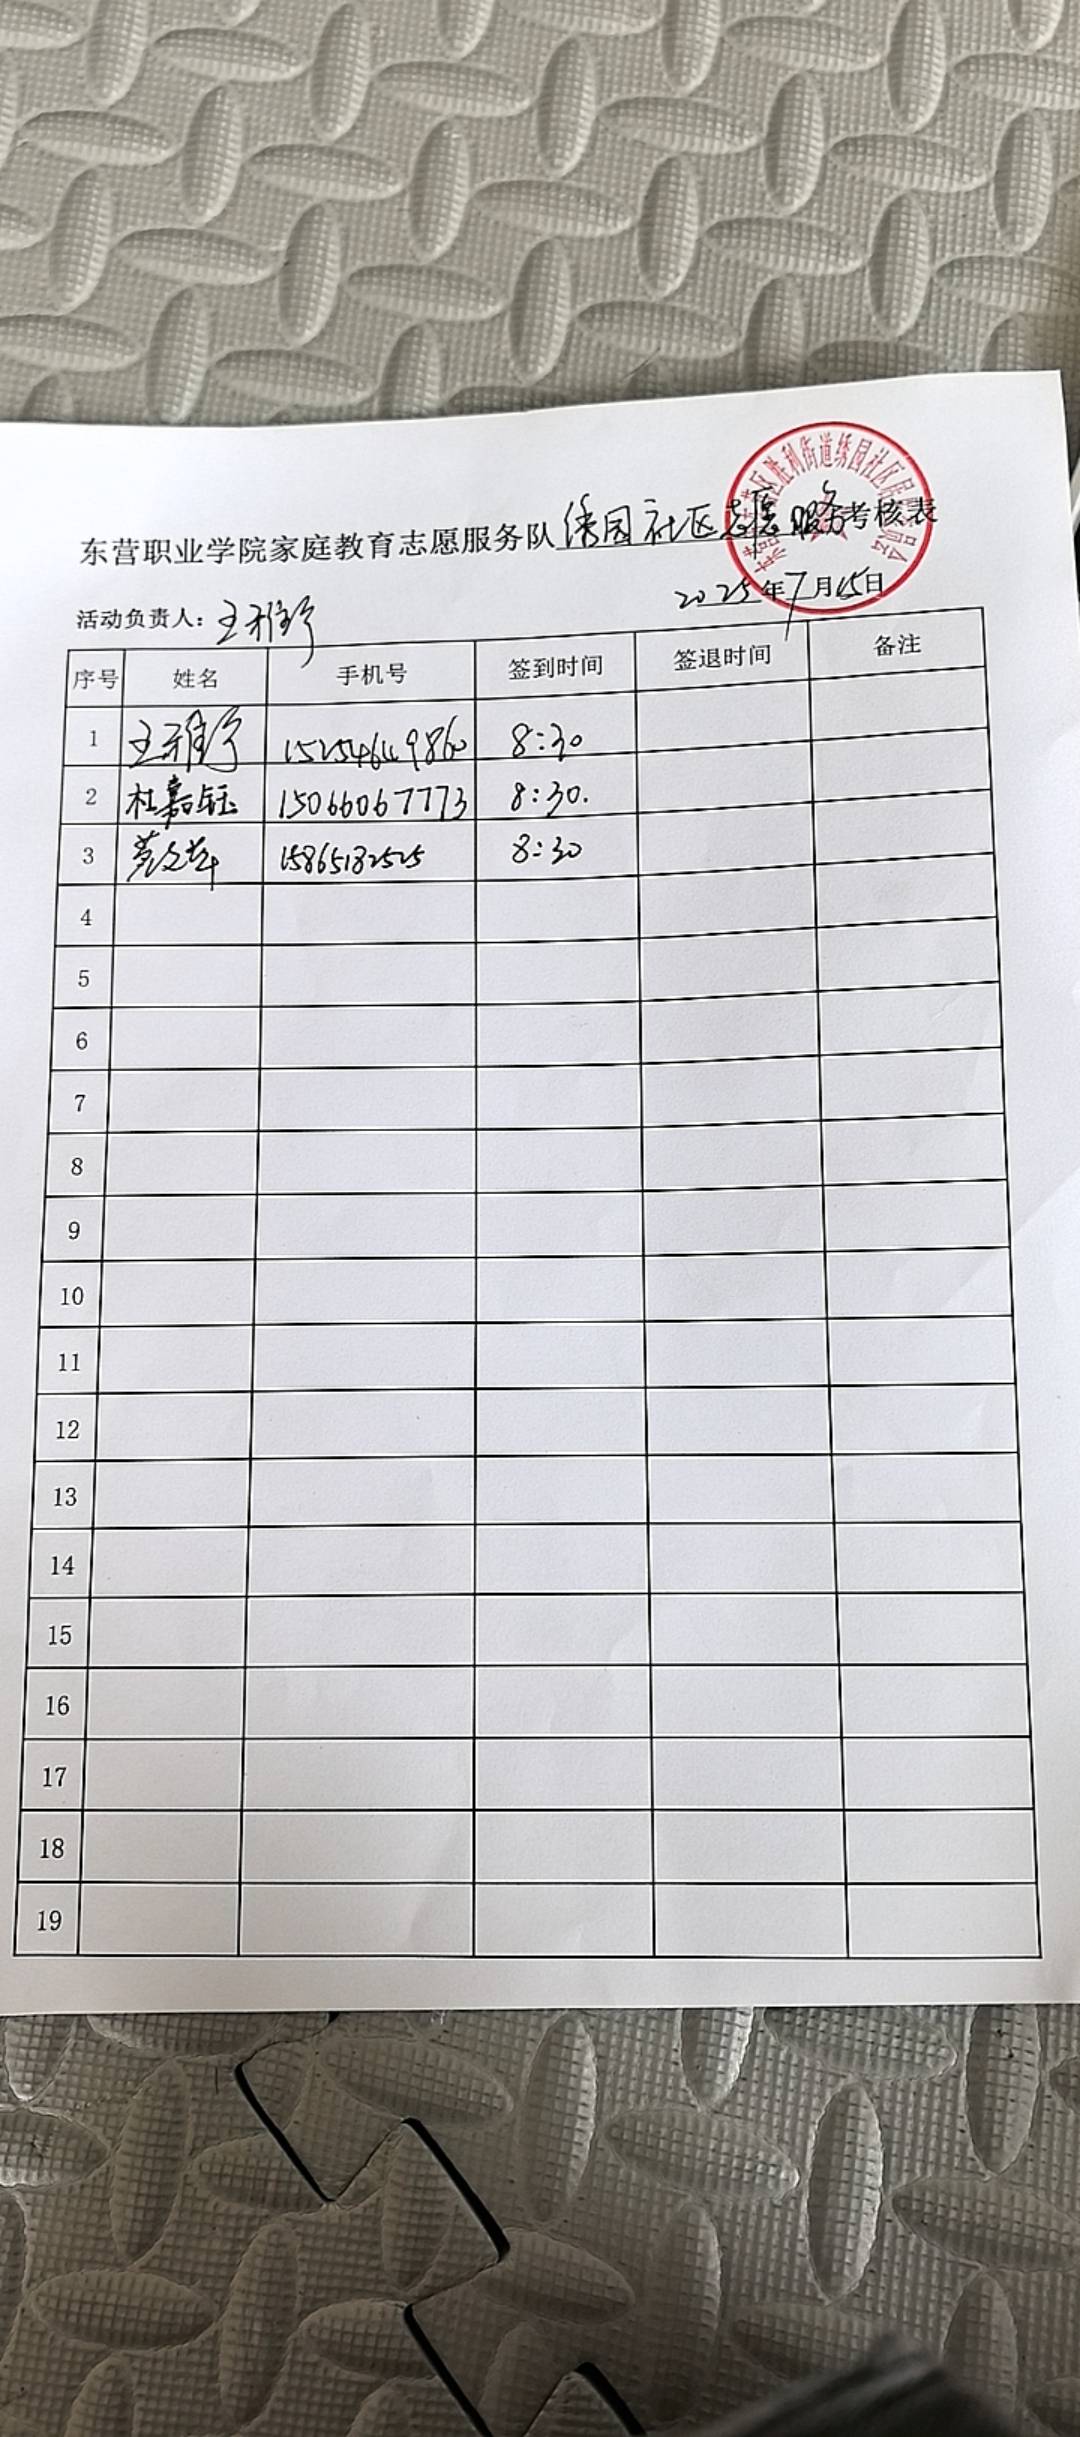 东营职业学院家庭教育志愿服务队绣园社区志愿服务考核表
2025年7月15日
活动负责人：王雅宁
序号 姓名 手机号 签到时间 签退时间 备注
1 王雅宁 8:30
2 杜嘉钰 15066067773 8:30.
3 15865182525 8:30
4
5
6
7
8
9
10
11
12
13
14
15
16
17
18
19